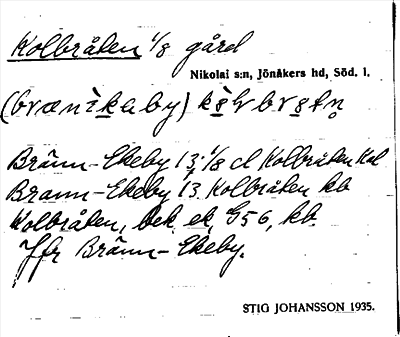 Kolbråten 1/8 gård
Nikolai s:n, Jönåkers hd, Söd. l.
(brænìkaby) kòlbrøtṇ
Bränn-Ekeby 13: 1/8 cl Kolbråten Kol
Brann-Ekeby 13 Kolbråten kb
Kolbråten, bek. ek, G56, kb.
Jfr Bränn-Ekeby.
STIG JOHANSSON 1935.